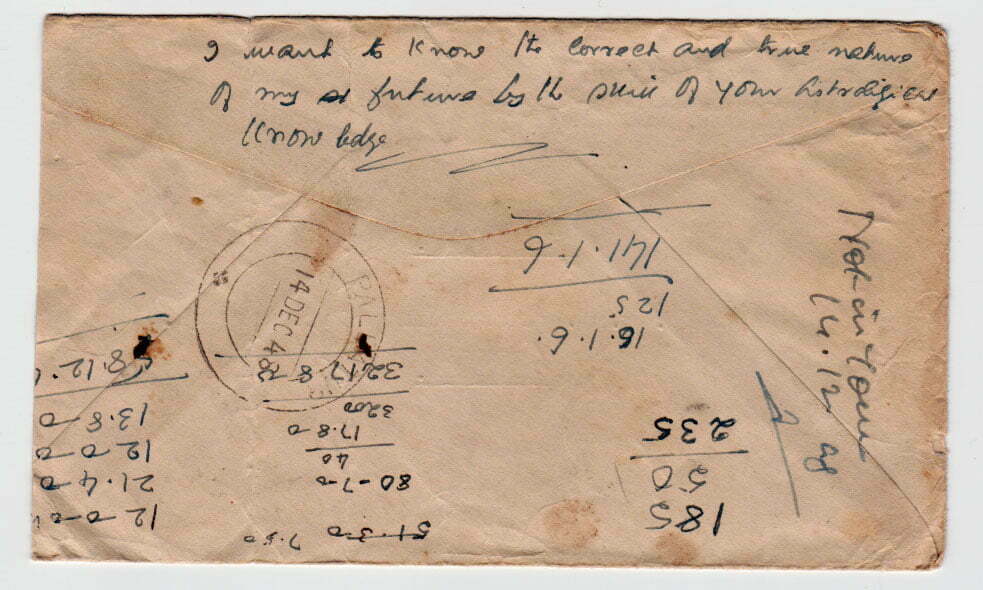 I want to know the correct and true nature
of my future by the skill of your Astrological
knowledge
Not in Town
14.12.48
PAL
14 DEC 48
16.1.6
125
141.1.6
185
50
235
51.3.0 7.50
80-7-0
40
17.8-0
3200
3217.8-0
12-0-0
21.4-0
12-0-0
13.8-0
8.12.